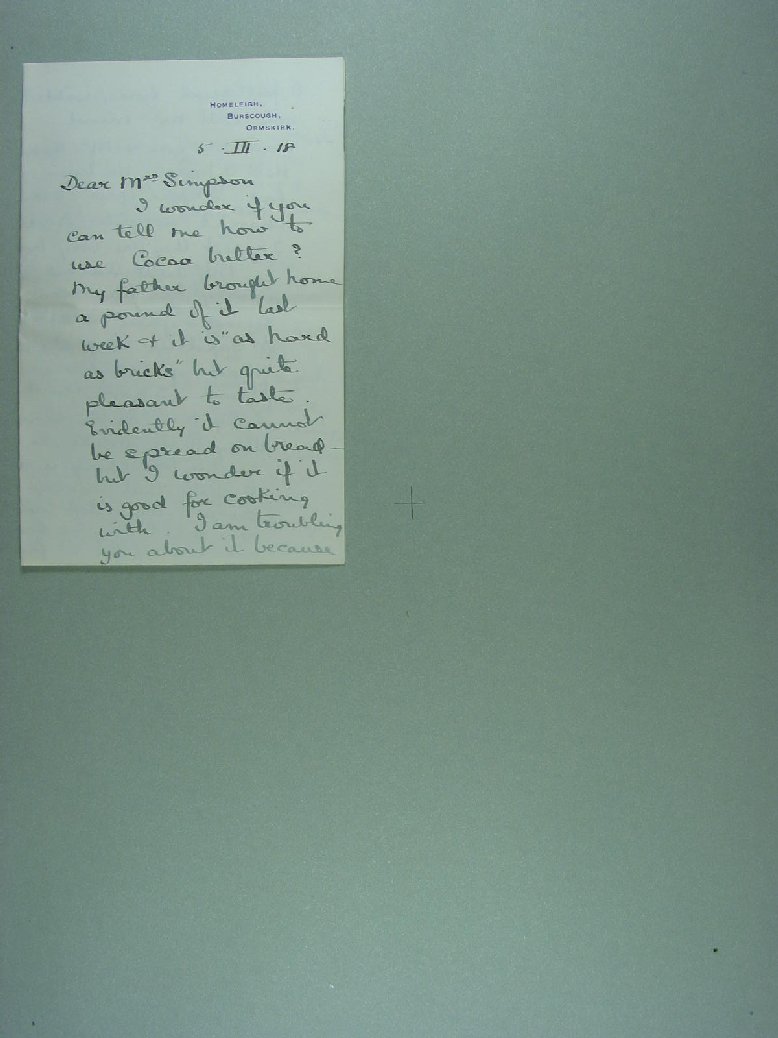 HOMELEIGH,
BURSCOUGH,
ORMSKIRK.
5 . III . 18
Dear Mrs Simpson
I wonder if you
can tell me how to
use Cocoa butter ?
My father brought home
a pound of it last
week & it is "as hard
as bricks" but quite
pleasant to taste.
Evidently it cannot
be spread on bread –
but I wonder if it
is good for cooking
with. I am troubling
you about it because